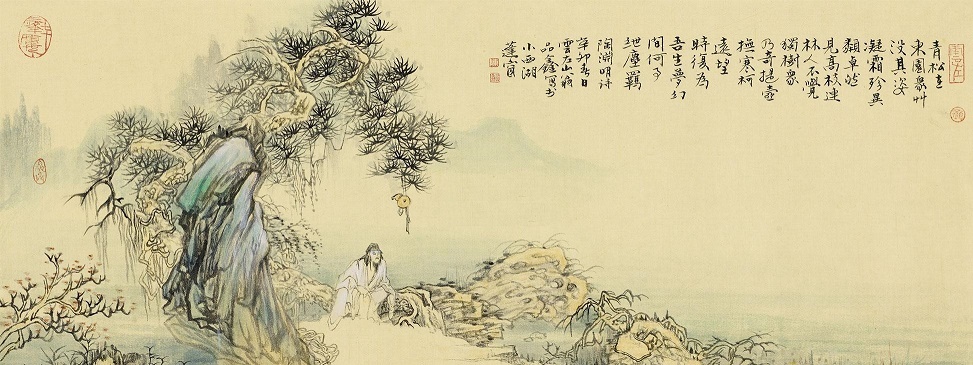 青松在
東園衆艸
没其姿
凝霜殄異
類卓然
見高枝連
林人不覺
獨樹衆
乃奇提壺
撫寒柯
遠望
時復為
吾生夢幻
間何事
紲塵羈
陶淵明詩
辛卯春日
雲山翁
品鑫寫
小西湖
蓬窗